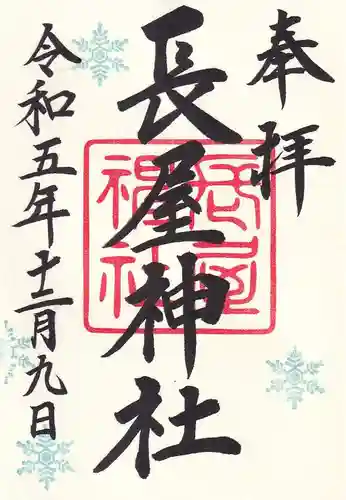 奉拝
長屋神社
長屋神社
令和五年十二月九日